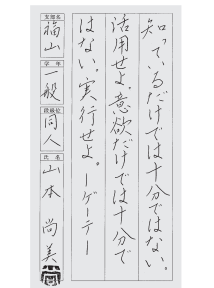 知っているだけでは十分ではない。
活用せよ。意欲だけでは十分で
はない。実行せよ。ーゲーテー
支部名
福山
学年
一般
段級位
同人
氏名
山本尚美